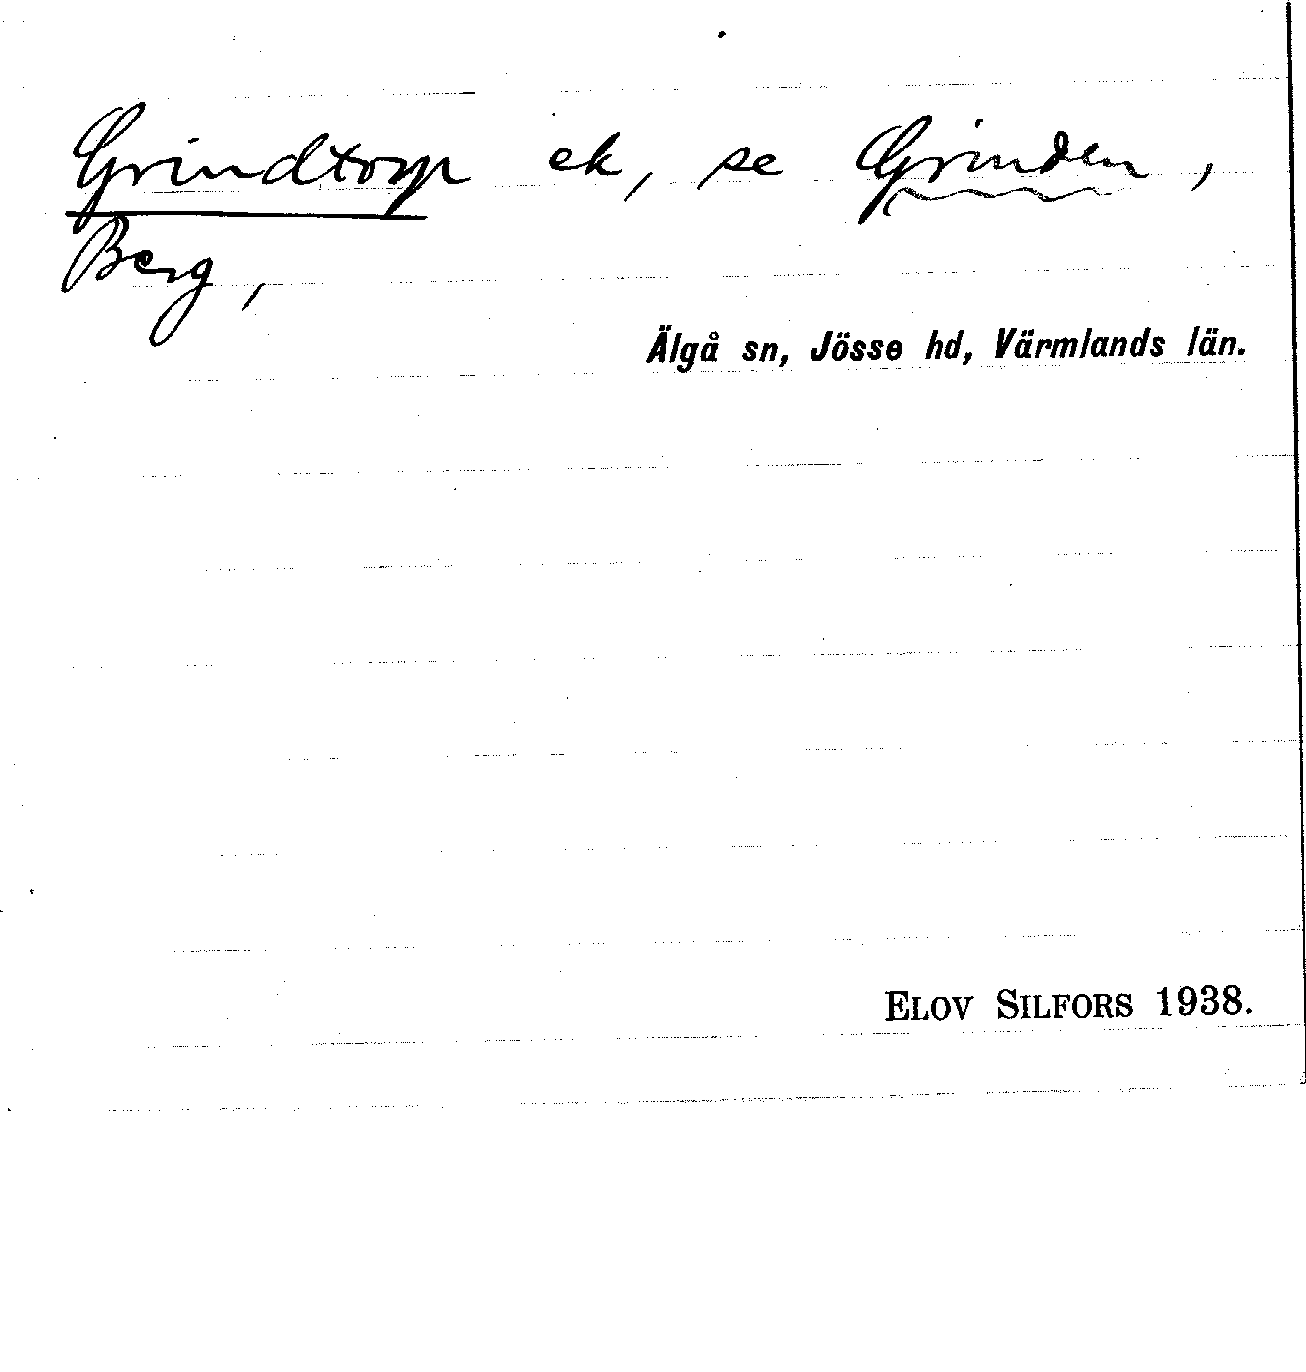 Grindtorp ek, se Grinden,
Berg,
Älgå sn, Jösse hd, Värmlands län.
ELOV SILFORS 1938.